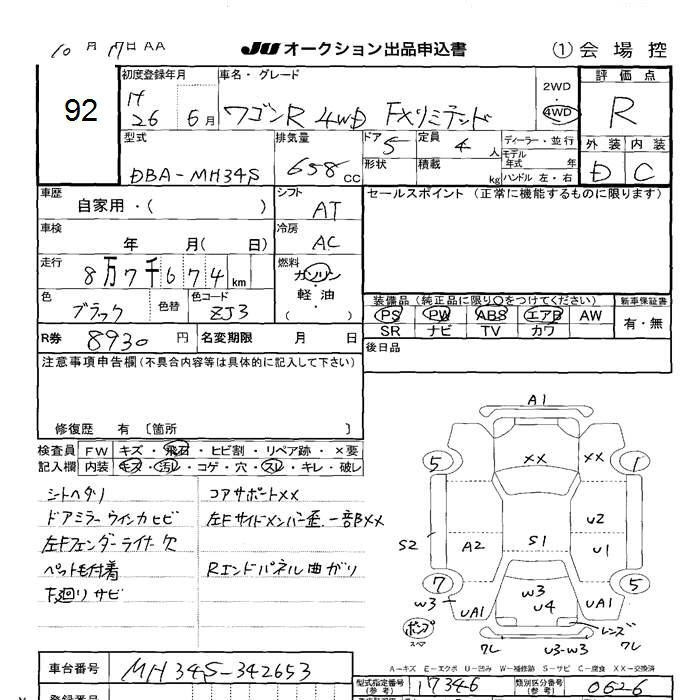 10月17日AA JU オークション出品申込書 ① 会場控
92 初度登録年月 車名・グレード 2WD・4WD 評価点
H26 6月 ワゴンR 4WD FXリミテッド R
型式 排気量 ドア 5 定員 4人 ディーラー・並行 外装 内装
DBA-MH34S 658cc 形状 積載 kg モデル年式 年 ハンドル 左・右 D C
車歴 シフト セールスポイント(正常に機能するものに限ります)
自家用・( ) AT
車検 冷房
年 月( 日) AC
走行 燃料
8万7千674km ガソリン・軽油・( )
色 色替 色コード 装備品(純正品に限り○をつけてください) 新車保証書
ブラック ZJ3 PS PW ABS エアB AW 有・無
SR ナビ TV カワ
R券 8930円 名変期限 月 日 後日品
注意事項申告欄(不具合内容等は具体的に記入して下さい)
修復歴 有〔箇所 〕
検査員記入欄 FW キズ・飛石・ヒビ割・リペア跡・×要
内装 キズ・汚れ・コゲ・穴・スレ・キレ・破レ
シートヘタリ コアサポートXX
ドアミラーウインカヒビ 左Fサイドメンバー歪、一部BXX
左Fフェンダーライナー欠
ペット毛付着 Rエンドパネル曲がり
下廻りサビ
A1
XX XX
5 1
U2
S2 A2 S1 U1
7 5
W3 W3
UA1 U4 UA1
ポンプ スペア レンズ
ワレ U3-W3 ワレ
A−キズ E−エクボ U−凹み W−補修跡 S−サビ C−腐食 XX−交換済
車台番号 MH34S-342653 型式指定番号(参考) 17346 類別区分番号(参考) 0626